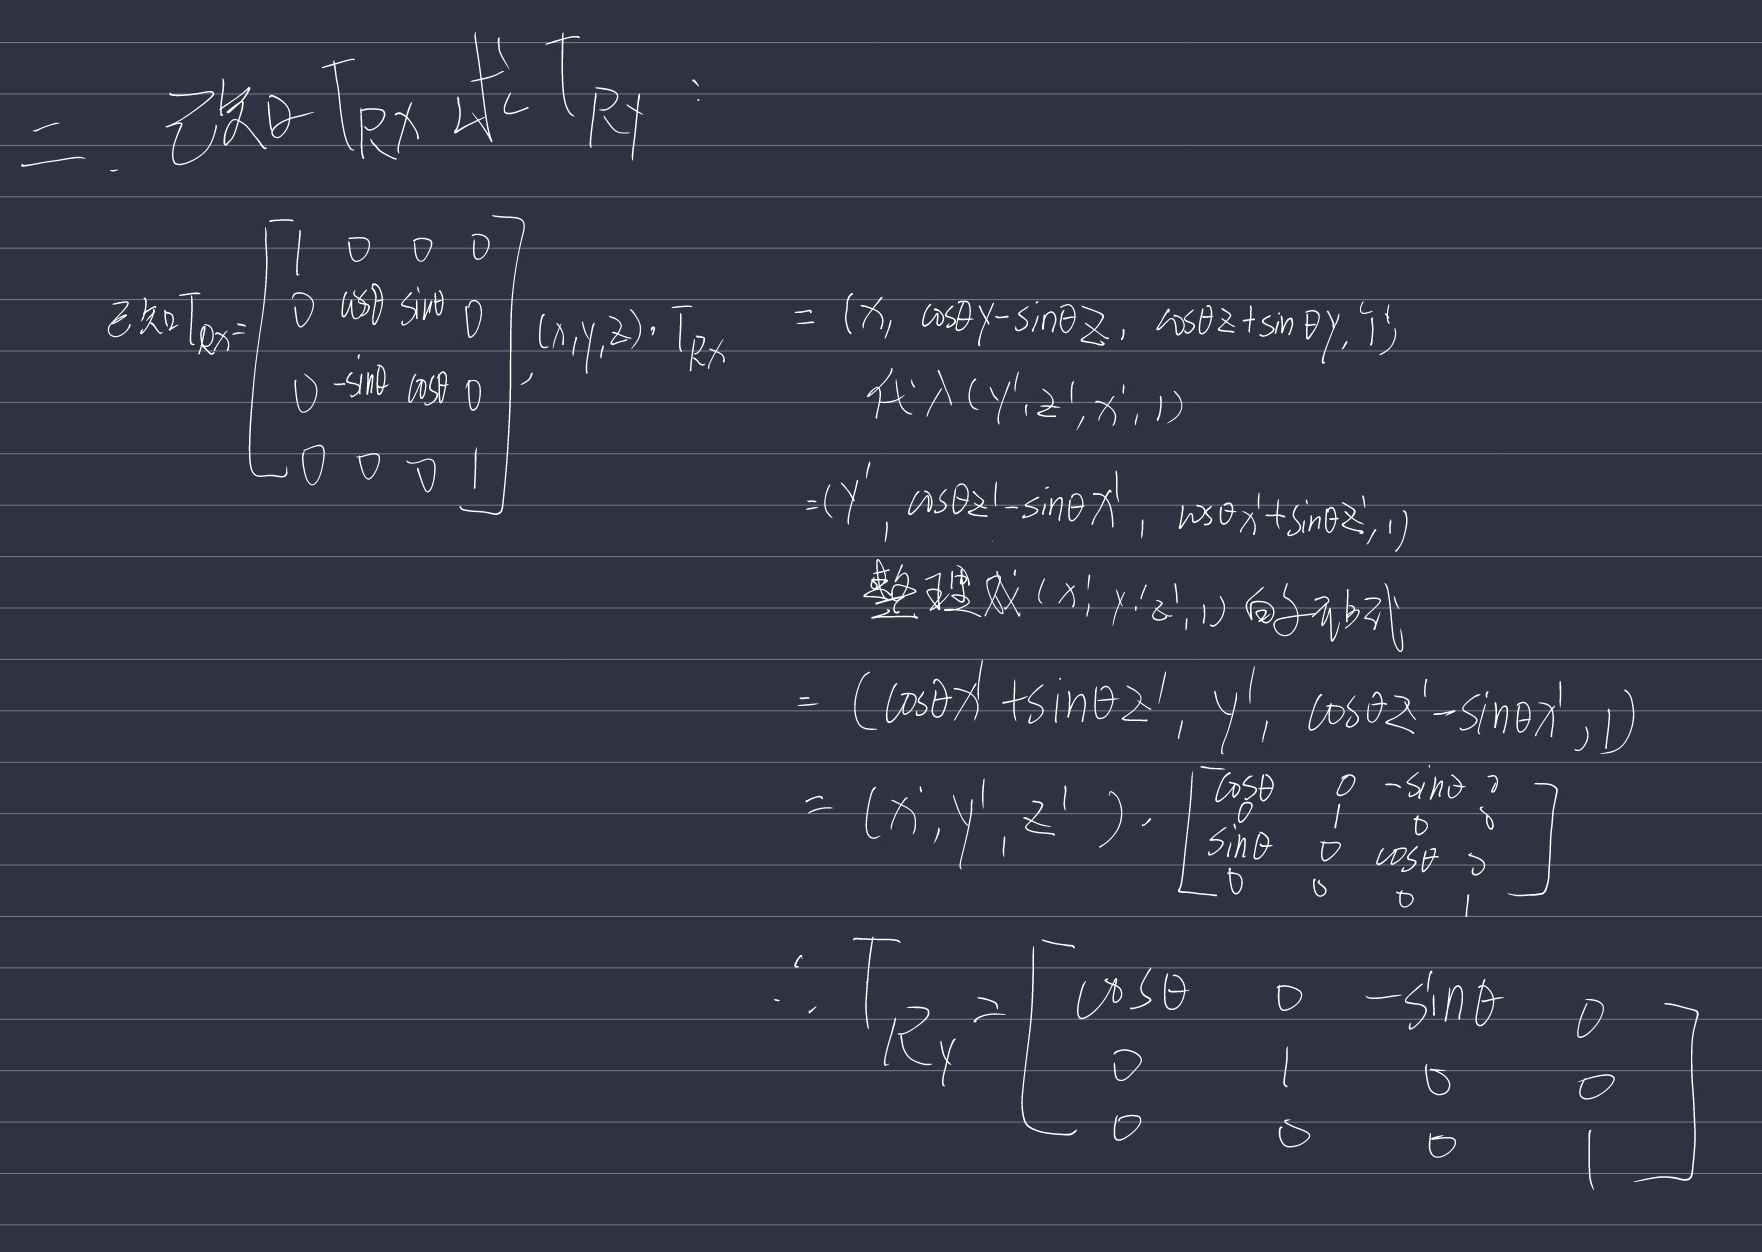 二. 已知TRX求TRY:
已知TRX=[1 0 0 0
0 cosθ sinθ 0
0 -sinθ cosθ 0
0 0 0 1], (x,y,z)·TRX
=(x, cosθy-sinθz, cosθz+sinθy, 1)
代入(y',z',x',1)
=(y', cosθz'-sinθx', cosθx'+sinθz', 1)
整理成(x',y',z',1)的形式
=(cosθx'+sinθz', y', cosθz'-sinθx', 1)
=(x',y',z')·[cosθ 0 -sinθ 0
0 1 0 0
sinθ 0 cosθ 0
0 0 0 1]
∴TRY=[cosθ 0 -sinθ 0
0 1 0 0
0 0 0 1]